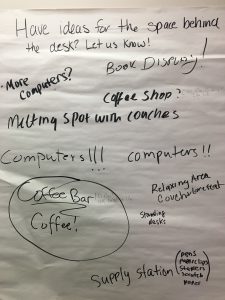 Have ideas for the space behind
the desk? Let us know!
Book Display!
• More
Computers?
Coffee Shop?
Melting spot with couches
Computers!!!
computers!!
Coffee Bar
Coffee!
Relaxing Area
Standing
desks
supply station
pens
paperclips
staplers
scratch
paper